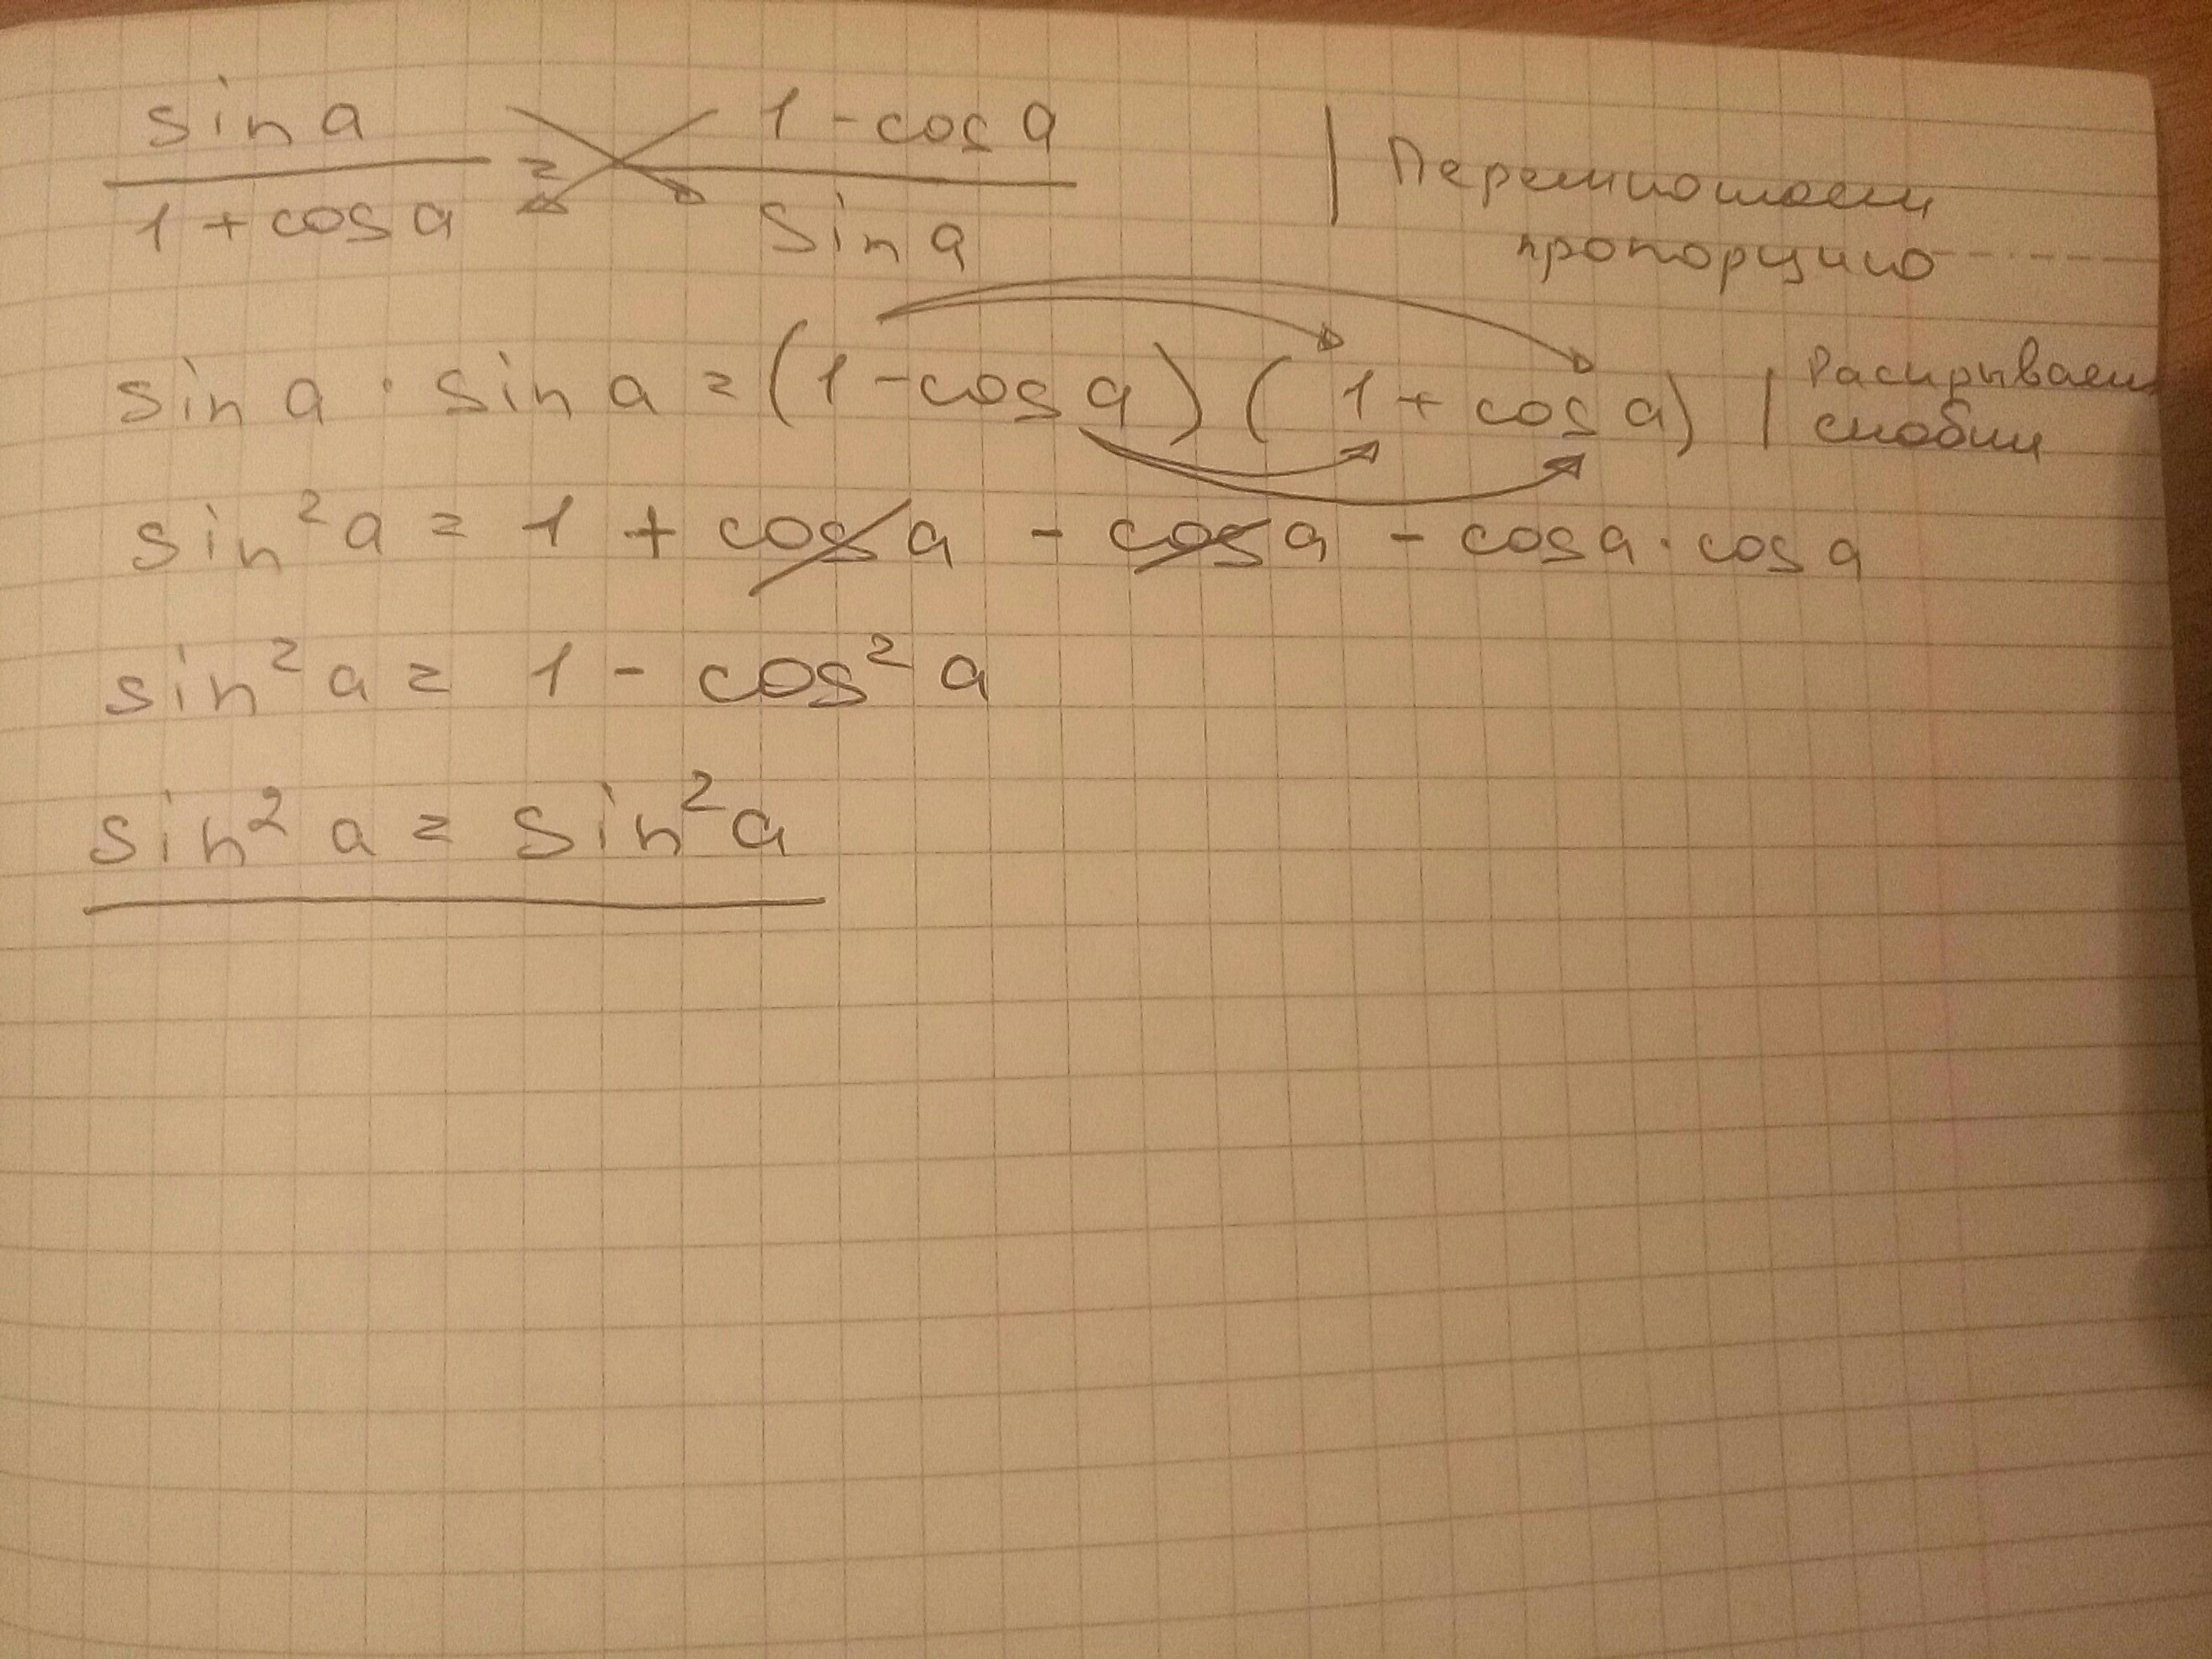 sin a / 1 + cos a = 1 - cos a / sin a | Перемножаем
пропорцию
sin a · sin a = (1 - cos a) (1 + cos a) | Раскрываем
скобки
sin² a = 1 + cos a - cos a - cos a · cos a
sin² a = 1 - cos² a
sin² a = sin² a